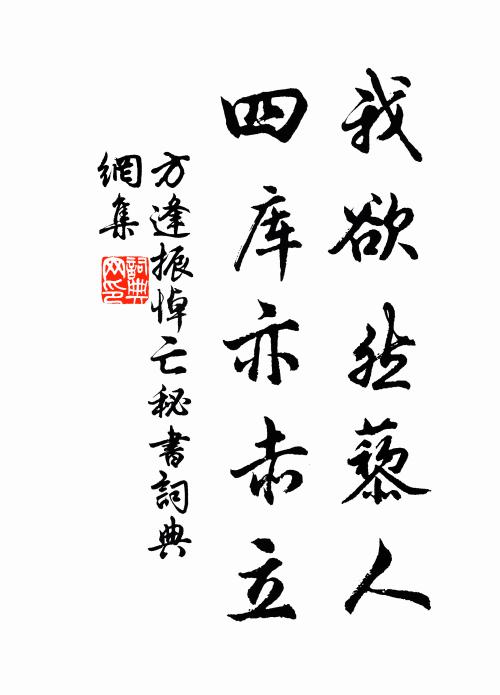 我欲然藜人
四库亦赤立
方逢振悼亡秘書詞典
網集
詞典網印